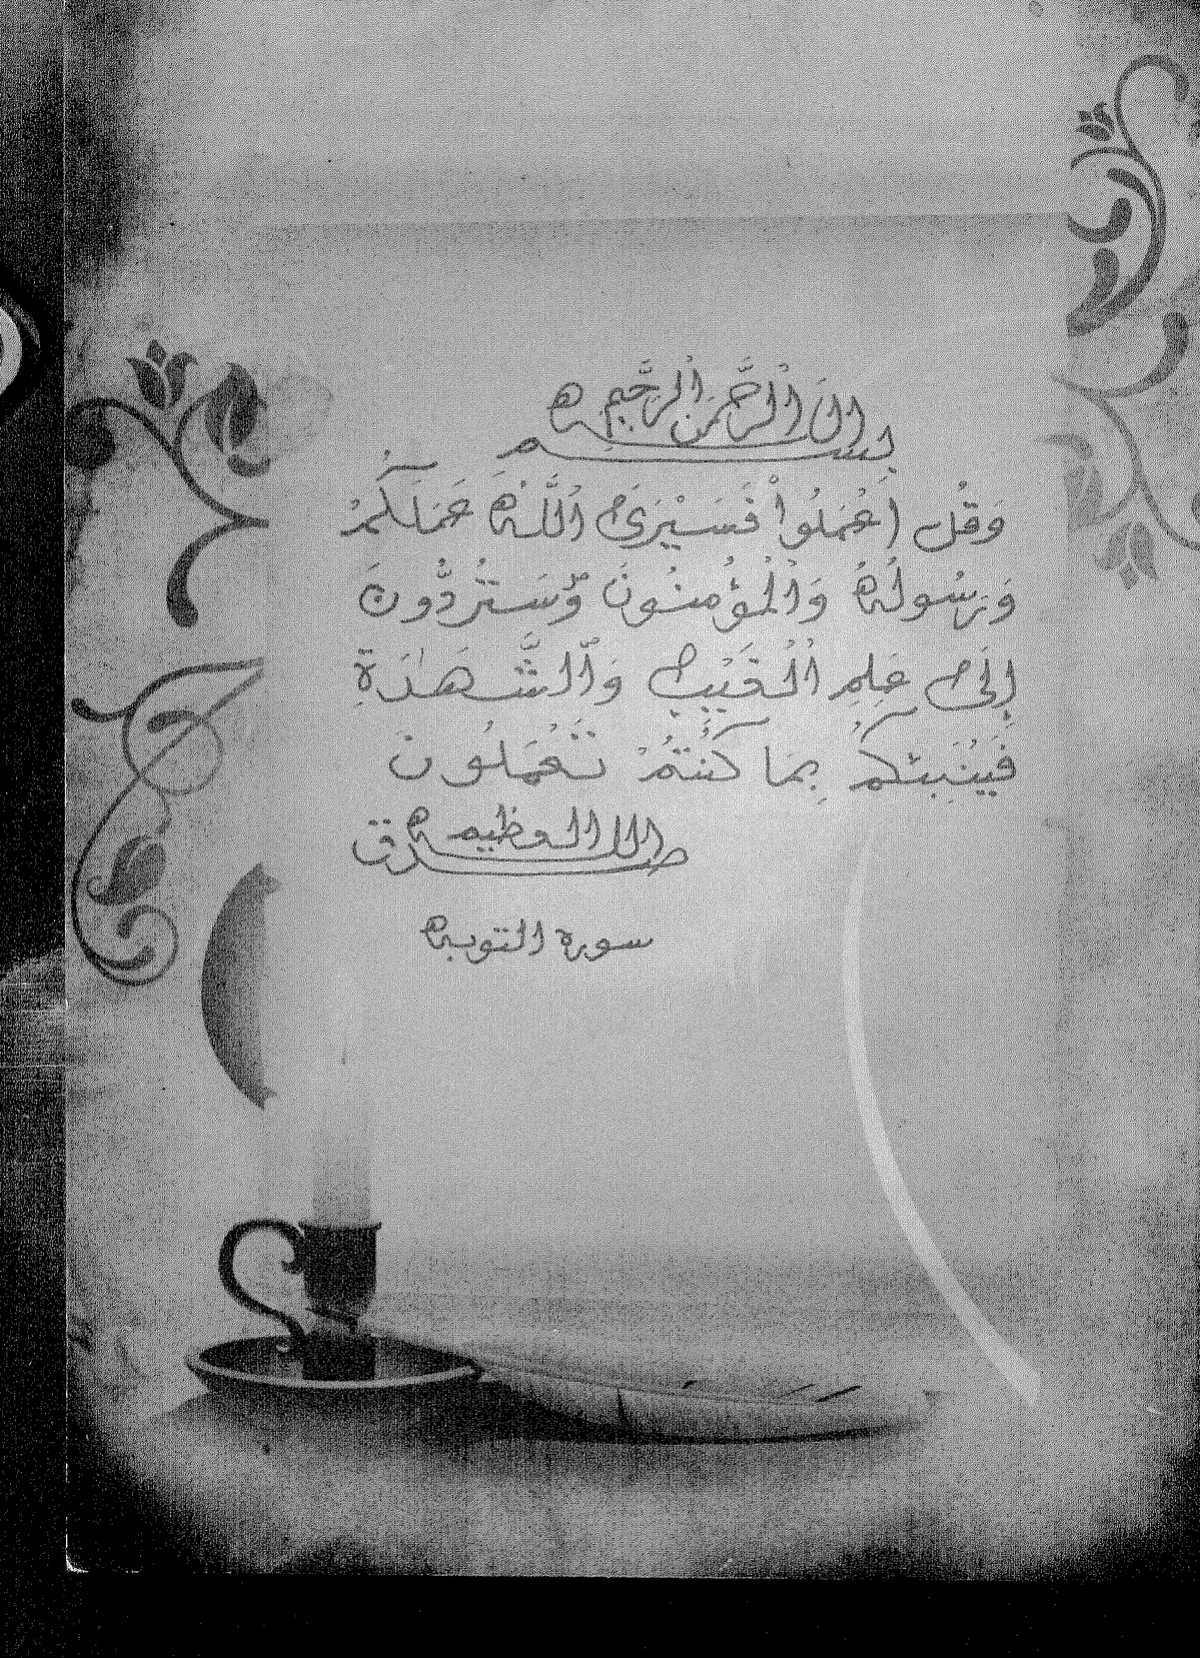 بسم الله الرحمن الرحيم
وَقُلِ اعْمَلُواْ فَسَيَرَى اللَّهُ عَمَلَكُمْ
وَرَسُولُهُ وَالْمُؤْمِنُونَ وَسَتُرَدُّونَ
إِلَى عَلِمِ الْغَيْبِ وَالشَّهَدَةِ
فَيُنَبِئُكُم بِمَا كُنتُمْ تَعْمَلُونَ
صدق الله العظيم
سورة التوبه